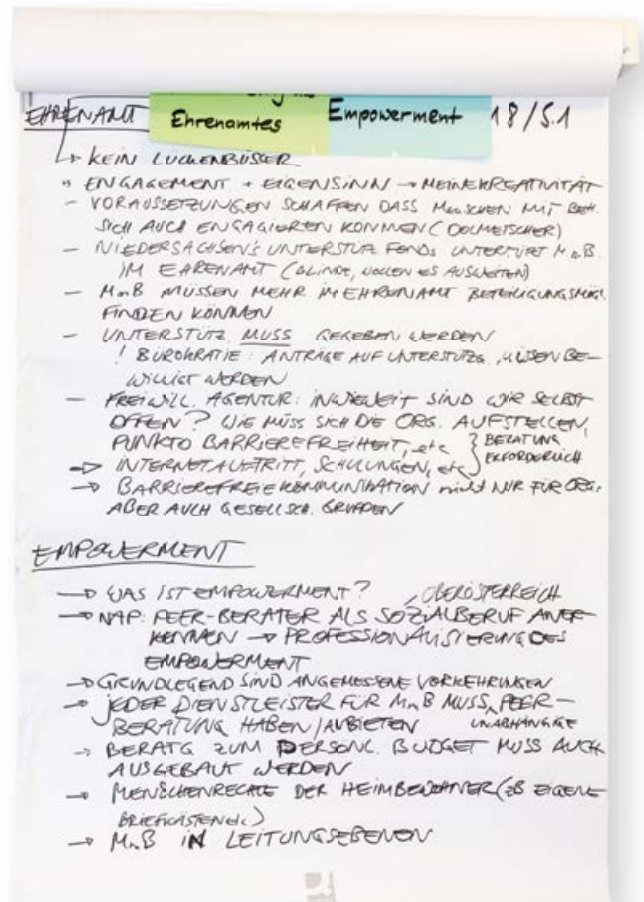 EHRENAMT
Ehrenamtes
Empowerment
18/5.1
↳ KEIN LÜCKENBÜSSER
" ENGAGEMENT + EIGENSINN → MEINE KREATIVITÄT
- VORAUSSETZUNGEN SCHAFFEN DASS MENSCHEN MIT BEH.
SICH AUCH ENGAGIEREN KÖNNEN (DOLMETSCHER)
- NIEDERSACHSEN'S UNTERSTÜTZ FONDS UNTERSTÜTZT M.B.
IM EHRENAMT (BLINDE, WOLLEN ES AUSWEITEN)
- MmB MÜSSEN MEHR IM EHRENAMT BETEILIGUNGSMÖGL.
FINDEN KÖNNEN
- UNTERSTÜTZ. MUSS GEGEBEN WERDEN
! BÜROKRATIE: ANTRÄGE AUF UNTERSTÜTZG. MÜSSEN BE-
WILLIGT WERDEN
- FREIWILL. AGENTUR: INWIEWEIT SIND WIR SELBST
OFFEN? WIE MUSS SICH DIE ORG. AUFSTELLEN,
PUNKTO BARRIEREFREIHEIT, etc } BERATUNG
→ INTERNETAUFTRITT, SCHULUNGEN, etc } ERFORDERLICH
→ BARRIEREFREIE KOMMUNIKATION nicht NUR FÜR ORG.
ABER AUCH GESELLSCH. GRUPPEN
EMPOWERMENT
→ WAS IST EMPOWERMENT? OBERÖSTERREICH
→ NAP: PEER-BERATER ALS SOZIALBERUF ANER-
KENNEN → PROFESSIONALISIERUNG DES
EMPOWERMENT
→ GRUNDLEGEND SIND ANGEMESSENE VORKEHRUNGEN
→ JEDER DIENSTLEISTER FÜR MmB MUSS PEER-
BERATUNG HABEN / ANBIETEN UNABHÄNGIGE
→ BERATG ZUM PERSÖNL. BUDGET MUSS AUCH
AUSGEBAUT WERDEN
→ MENSCHENRECHTE DER HEIMBEWOHNER (zB EIGENE
BRIEFKÄSTEN etc)
→ MmB IN LEITUNGSEBENEN